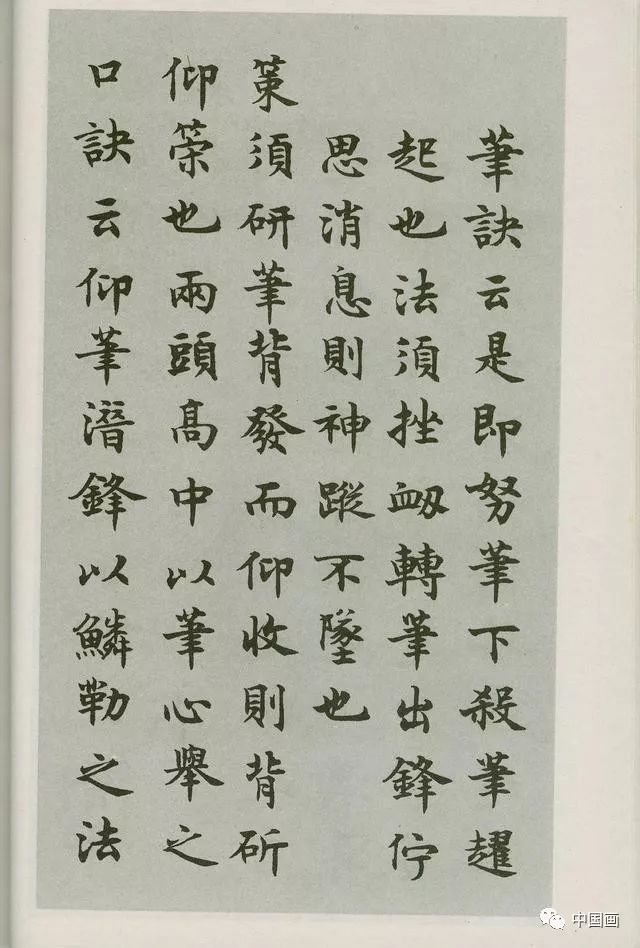 筆訣云是即努筆下殺筆趯
起也法須挫衄轉筆出鋒佇
思消息則神蹤不墜也
策須研筆背發而仰收則背斫
仰策也兩頭高中以筆心舉之
口訣云仰筆潛鋒以鱗勒之法
中国画